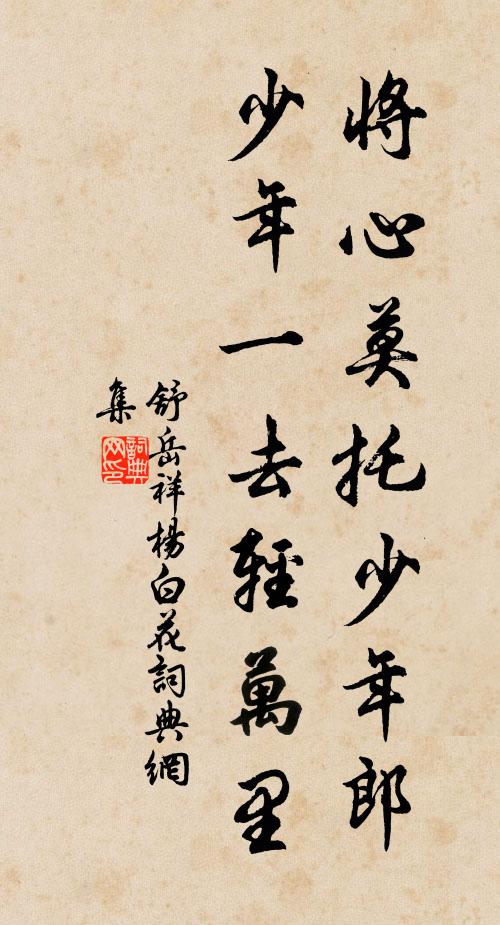 將心莫托少年郎
少年一去輕萬里
舒岳祥楊白花詞典網
集
詞典
网印